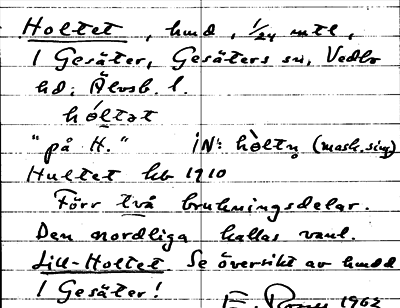 Holtet, hmd, 1/24 mtl,
I Gesäter, Gesäters sn, Vedbo
hd; Älvsb. l.
hóltət
"på H." iN: hòltn̥ (mask. sing)
Hultet kb 1910
Förr två brukningsdelar.
Den nordliga kallas vanl.
Lill-Holtet. Se översikt av hmdd
I Gesäter!
E. 1962